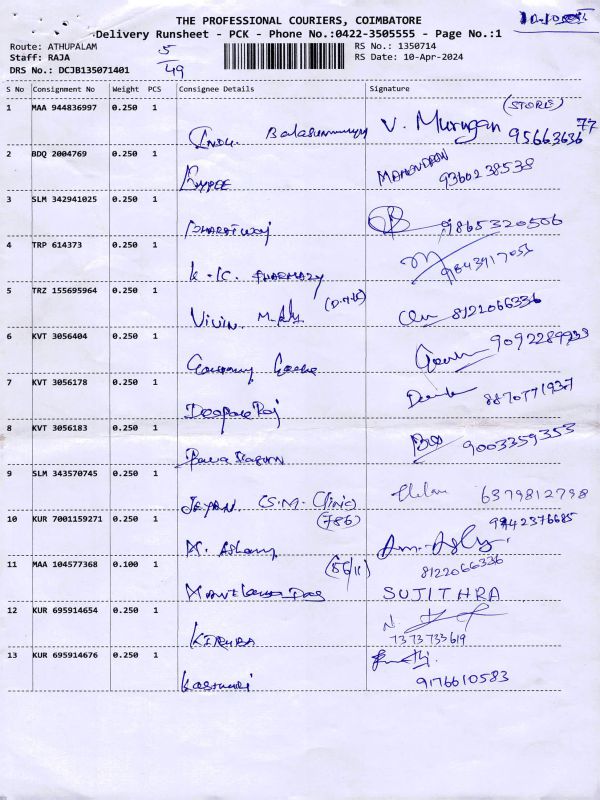 THE PROFESSIONAL COURIERS, COIMBATORE
Delivery Runsheet - PCK - Phone No.:0422-3505555 - Page No.:1
Route: ATHUPALAM
5/49
RS No.: 1350714
Staff: RAJA
RS Date: 10-Apr-2024
DRS No.: DCJB135071401
S No Consignment No Weight PCS Consignee Details Signature
1 MAA 944836997 0.250 1
(STORE)
V. Murugan 9566363677
2 BDQ 2004769 0.250 1
9360238538
3 SLM 342941025 0.250 1
9865320506
4 TRP 614373 0.250 1
K.K. PHARMACY 9843917053
5 TRZ 155695964 0.250 1
Vivin. 8122066336
6 KVT 3056404 0.250 1
9092289933
7 KVT 3056178 0.250 1
Deepak Raj 8870771937
8 KVT 3056183 0.250 1
9003359353
9 SLM 343570745 0.250 1
JEYAN. (S.M. Clinic) 6379812798
(786)
10 KUR 7001159271 0.250 1
9942376685
11 MAA 104577368 0.100 1
(56/11) 8122066336
SUJITHRA
12 KUR 695914654 0.250 1
KIRUBA 7373733619
13 KUR 695914676 0.250 1
Kasturi 9176610583